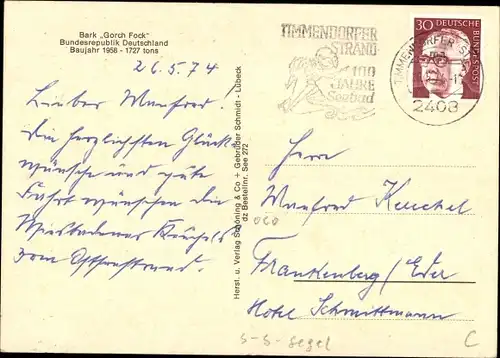 Bark „Gorch Fock"
Bundesrepublik Deutschland
Baujahr 1958 - 1727 tons
26.5.74
Lieber Manfred.
Die herzlichsten Glück
wünsche und gute
Fahrt wünschen die
vom Ostseestrand.
Herst. u. Verlag Schöning & Co + Gebrüder Schmidt - Lübeck
dz Bestellnr. See 272
TIMMENDORFER
STRAND
100
JAHRE
Seebad
30 DEUTSCHE
BUNDESPOST
TIMMENDORFER ST
2408
Herrn
Manfred
Frankenberg/Eder
Hotel Schmittmann
S-S-Segel
C